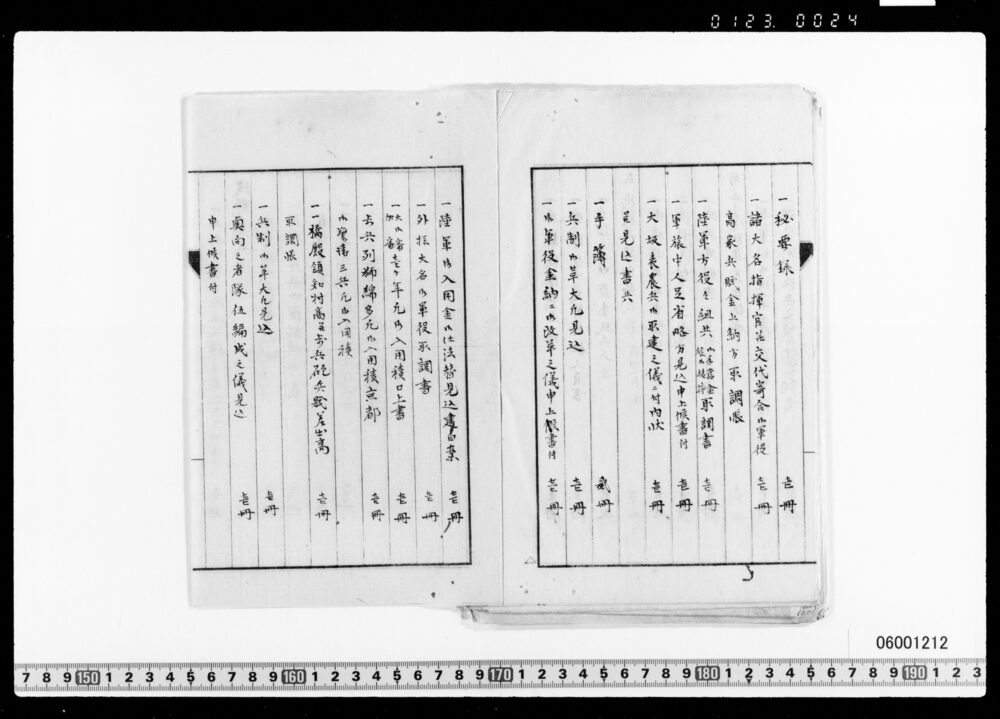 0123. 0024
一秘要録 壱冊
一諸大名指揮官並交代寄合御軍役 壱冊
高家兵賦金上納方取調帳
一陸軍方役々組共御手当金取調書 壱冊
一軍旅中人足省略方見込申上候書付 壱冊
一大坂表農兵御取建之儀ニ付内状 壱冊
並見込書共
一手簿 弐冊
一兵制御革大凡見込 壱冊
一御軍役金納ニ御改革之儀申上候書付 壱冊
一陸軍御入用金御仕法替見込建白案 壱冊
一外様大名御軍役取調書 壱冊
壱ヶ年凡御入用積口上書 壱冊
一歩兵 凡御入用積京都 壱冊
三兵凡御入用積
一一橋殿領知村高並歩兵砲兵賦差出高 壱冊
取調帳
一兵制御革大凡見込 壱冊
一奥向之者隊伍編成之儀見込 壱冊
申上候書付
06001212
7 8 9 150 1 2 3 4 5 6 7 8 9 160 1 2 3 4 5 6 7 8 9 170 1 2 3 4 5 6 7 8 9 180 1 2 3 4 5 6 7 8 9 190 1 2 3